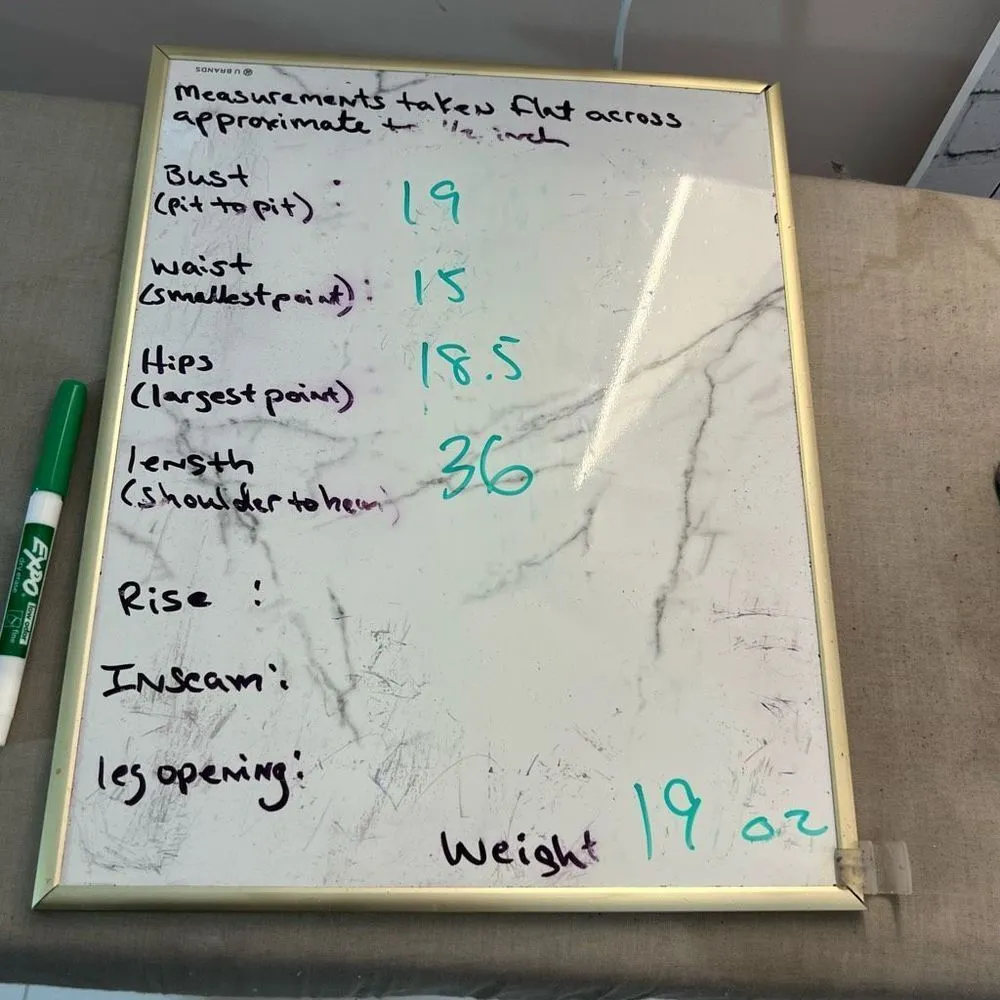 U BRANDS
Measurements taken flat across
approximate to 1/2 inch
Bust
(pit to pit) : 19
Waist
(smallest point) : 15
Hips 18.5
(largest point)
length 36
(shoulder to hem)
Rise :
Inseam :
leg opening :
Weight 19 oz
EXPO
dry erase
low odor
fine